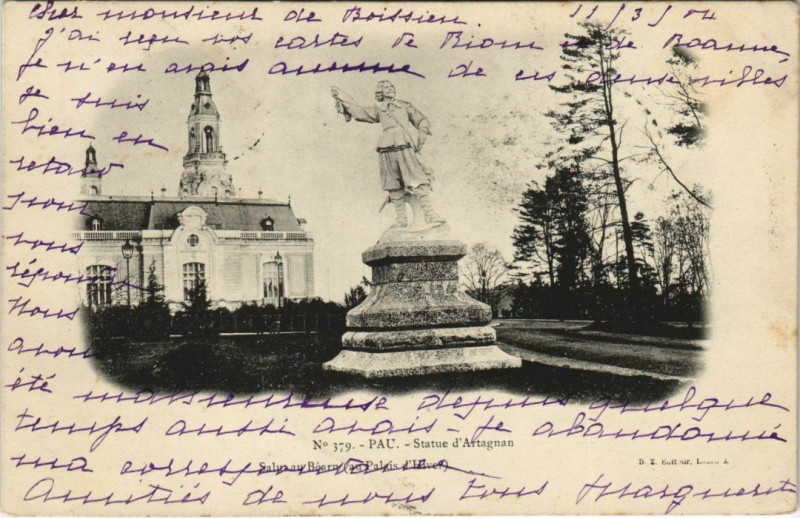 Cher monsieur de Boissieu. 11/3/04
J'ai reçu vos cartes de Riom et de Roanne,
je n'en avais aucune de ces deux villes
Je suis
bien en
retard
pour
vous
répondre
Nous
avons
été
temps aussi avais-je abandonné
ma correspondance
Amitiés de nous tous Marguerite
No 379. - PAU. - Statue d'Artagnan
Salut au Béarn (au Palais d'Hiver)